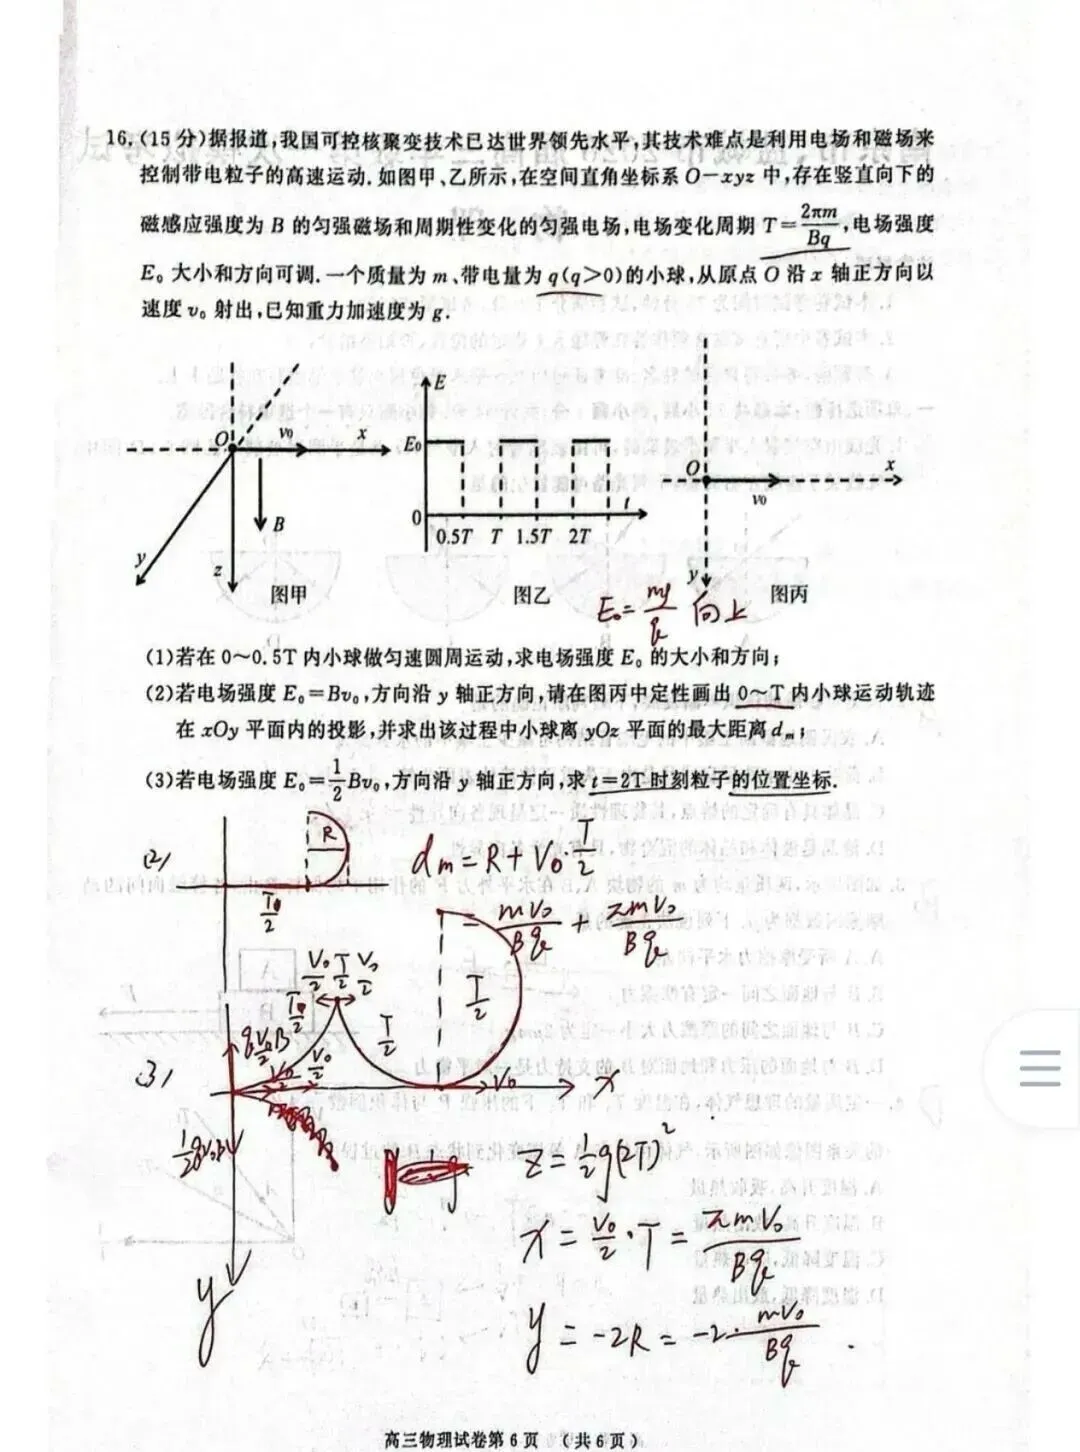 16.(15分)据报道,我国可控核聚变技术已达世界领先水平,其技术难点是利用电场和磁场来
控制带电粒子的高速运动.如图甲、乙所示,在空间直角坐标系O-xyz中,存在竖直向下的
磁感应强度为B的匀强磁场和周期性变化的匀强电场,电场变化周期T=2πm/Bq,电场强度
E₀大小和方向可调.一个质量为m、带电量为q(q>0)的小球,从原点O沿x轴正方向以
速度v₀射出,已知重力加速度为g.
O v₀ x
B
y z
图甲
E
E₀
0 0.5T T 1.5T 2T t
图乙
O v₀ x
y
图丙
E₀=mg/q 向上
(1)若在0~0.5T内小球做匀速圆周运动,求电场强度E₀的大小和方向;
(2)若电场强度E₀=Bv₀,方向沿y轴正方向,请在图丙中定性画出0~T内小球运动轨迹
在xOy平面内的投影,并求出该过程中小球离yOz平面的最大距离dₘ;
(3)若电场强度E₀=1/2Bv₀,方向沿y轴正方向,求t=2T时刻粒子的位置坐标.
(2)
R
dm=R+V₀·T/2
=mV₀/Bq+πmV₀/Bq
V₀/2 T/2 V₀/2
T/2
T/2
(3)
q V₀/2 B
V₀/2
V₀/2
V₀
x
y
z=1/2g(2T)²
x=V₀/2·T=πmV₀/Bq
y=-2R=-2·mV₀/Bq.
高三物理试卷第6页 (共6页)